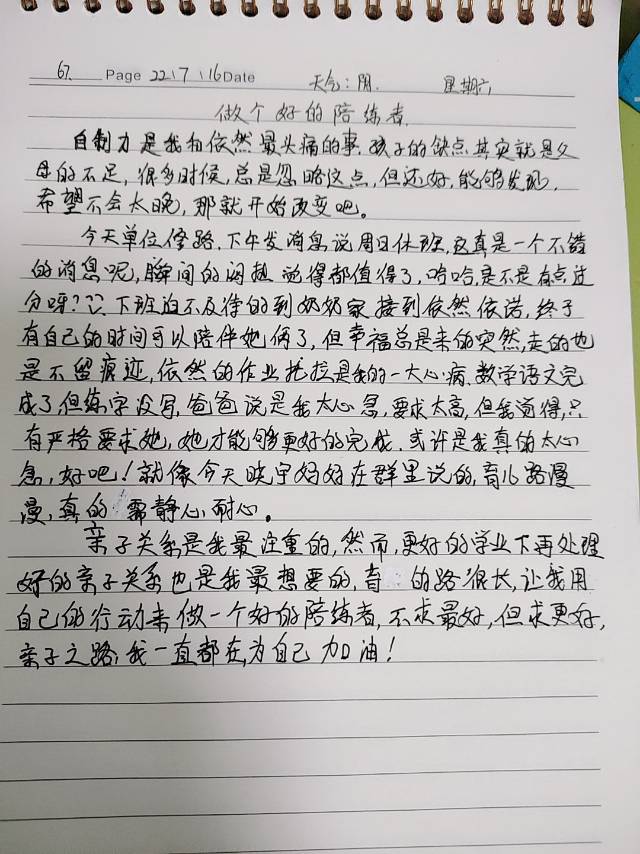 67. Page 22、7、16 Date 天气:阴. 星期六
做个好的陪练者.
自制力是我和依然最头痛的事.孩子的缺点其实就是父
母的不足,很多时候,总是忽略这点,但还好,能够发现,
希望不会太晚,那就开始改变吧。
今天单位修路,下午发消息说周日休班,这真是一个不错
的消息呢,瞬间的闷热觉得都值得了,哈哈,是不是有点过
分呀??下班迫不及待的到奶奶家接到依然依诺,终于
有自己的时间可以陪伴她俩了,但幸福总是来的突然,走的也
是不留痕迹,依然的作业拖拉是我的一大心病.数学语文完
成了,但练字没写,爸爸说是我太心急,要求太高,但我觉得,只
有严格要求她,她才能够更好的完成.或许是我真的太心
急,好吧!就像今天晓宇妈妈在群里说的,育儿路漫
漫,真的需静心耐心。
亲子关系是我最注重的,然而,更好的学业下再处理
好的亲子关系也是我最想要的,育 的路很长,让我用
自己的行动来做一个好的陪练者,不求最好,但求更好,
亲子之路,我一直都在,为自己加油!